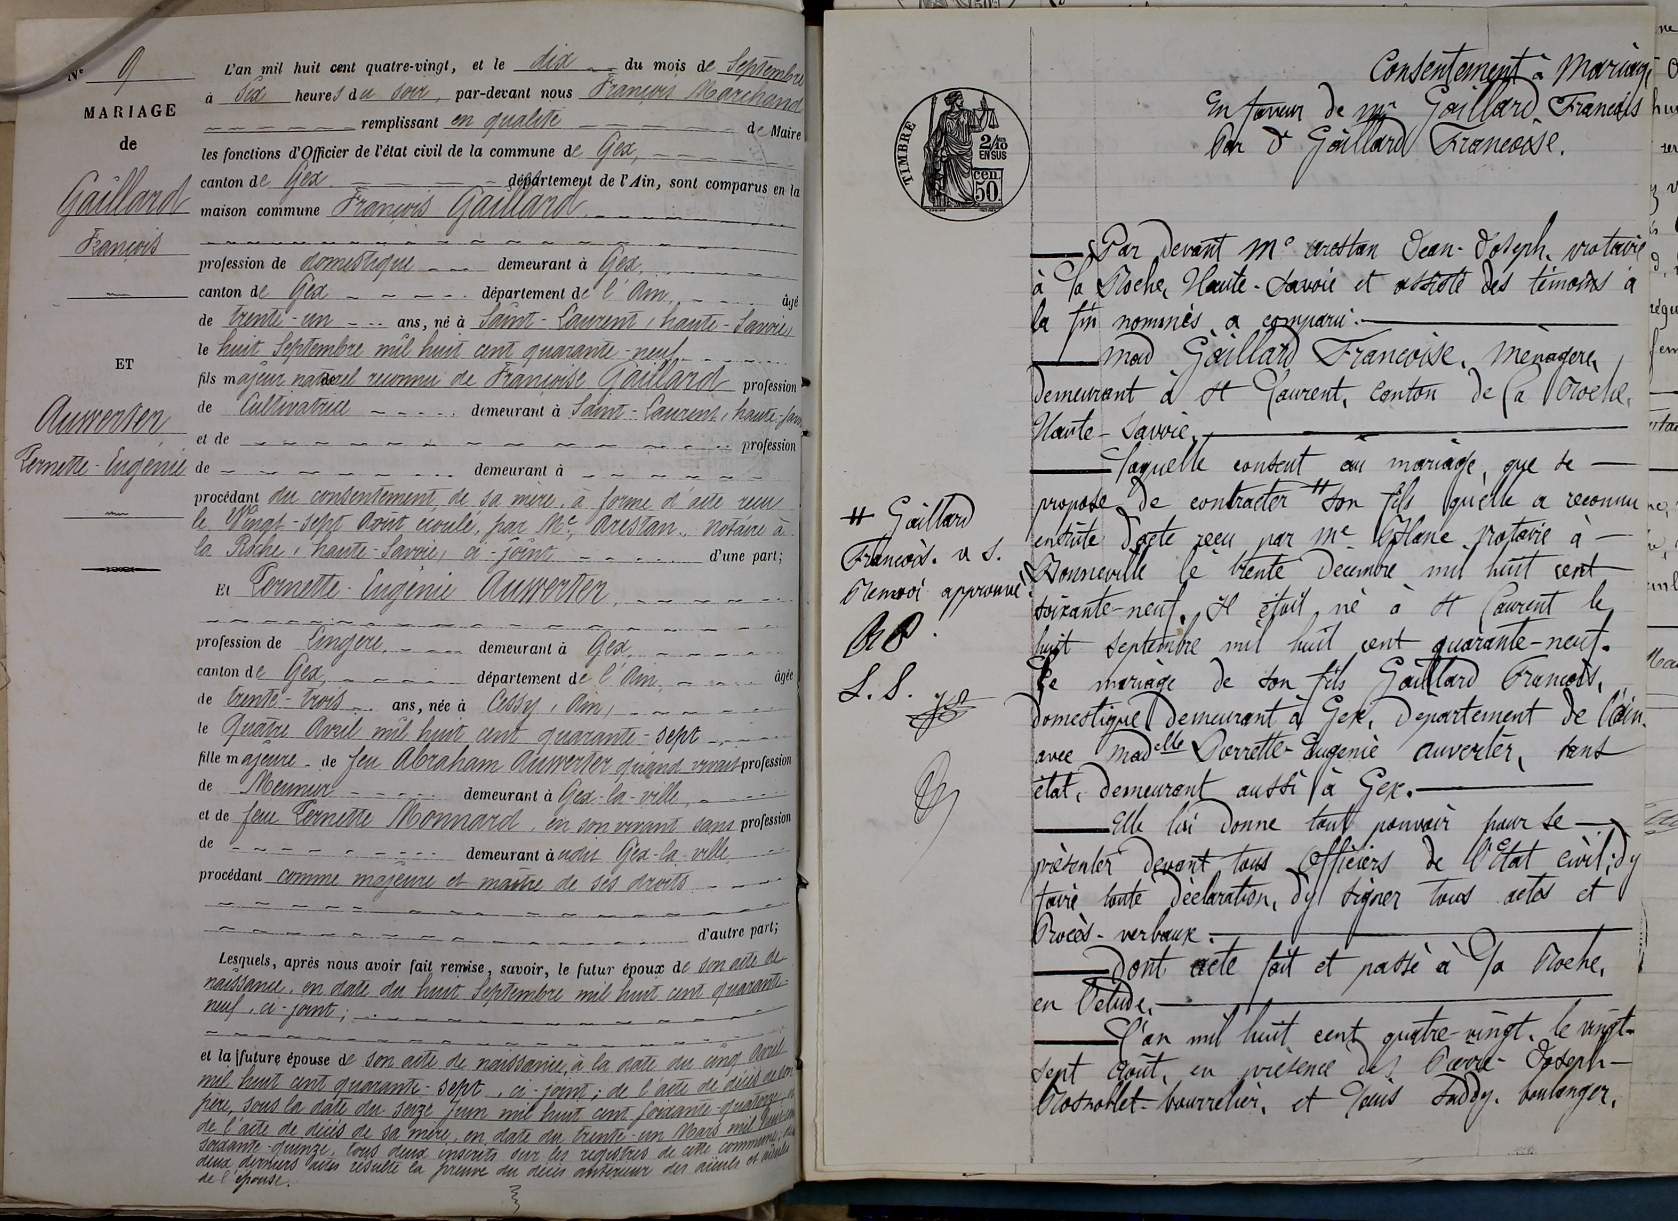 N° 9
MARIAGE
de
Gaillard
François
ET
Auwerter
Pernette-Eugénie
L'an mil huit cent quatre-vingt, et le dix du mois de Septembre
à Six heures du soir, par-devant nous François Marchand
remplissant en qualité de Maire
les fonctions d'Officier de l'état civil de la commune de Gex,
canton de Gex département de l'Ain, sont comparus en la
maison commune François Gaillard
profession de domestique demeurant à Gex,
canton de Gex département de l'Ain, âgé
de trente-un ans, né à Saint-Laurent, haute-Savoie,
le huit Septembre mil huit cent quarante-neuf
fils majeur naturel reconnu de Françoise Gaillard profession
de Cultivatrice demeurant à Saint-Laurent, haute-Sav
et de profession
de demeurant à
procédant du consentement de sa mère, à forme d'acte reçu
le Vingt-sept Août écoulé, par Me. Arestan, notaire à
la Roche, haute-Savoie, ci-joint d'une part;
Et Pernette-Eugénie Auwerter,
profession de lingère, demeurant à Gex,
canton de Gex, département de l'Ain, âgée
de trente-trois ans, née à Cessy, Ain,
le Quatre Avril mil huit cent quarante-sept
fille majeure de feu Abraham Auwerter quand vivait profession
de Meunier demeurant à Gex-la-ville,
et de feue Pernette Monnard, en son vivant sans profession
de demeurant à audit Gex-la-ville,
procédant comme majeure et maître de ses droits
d'autre part;
Lesquels, après nous avoir fait remise, savoir, le futur époux de son acte de
naissance, en date du huit Septembre mil huit cent quarante-
neuf, ci-joint;
et la future épouse de son acte de naissance, à la date du cinq Avril
mil huit cent quarante-sept, ci-joint; de l'acte de décès de son
père, sous la date du seize Juin mil huit cent soixante-quatorze,
de l'acte de décès de sa mère, en date du trente-un Mars mil huit cent
soixante-quinze, tous deux inscrits sur les registres de cette commune;
deux derniers actes résulte la preuve du décès antérieur des aïeuls et aïeules
de l'épouse.
TIMBRE
2/10
EN SUS
50 cen
Consentement à Mariage
En faveur de mr Gaillard François
Par de Gaillard Francoise.
Par devant Me Arestan Jean-Joseph, notaire
à la Roche, Haute-Savoie et assisté des témoins à
la fin nommés a comparu:
Mad Gaillard Francoise, ménagère,
demeurant à St Laurent, canton de la Roche,
Haute-Savoie,
laquelle consent au mariage, que se
propose de contracter # son fils qu'elle a reconnu
ensuite d'acte reçu par me notaire à
Bonneville le trente Décembre mil huit cent
soixante-neuf. Il était né à St Laurent le
huit septembre mil huit cent quarante-neuf.
Le mariage de son fils Gaillard François,
domestique demeurant à Gex, Département de l'Ain
avec Madelle Pierrette-Eugénie Auverter, sans
état, demeurant aussi à Gex.
Elle lui donne tout pouvoir pour se
présenter devant tous officiers de l'Etat civil, d'y
faire toute déclaration, d'y signer tous actes et
Procès-verbaux.
Dont acte fait et passé à la Roche,
en l'étude,
L'an mil huit cent quatre-vingt, le vingt-
sept Août, en présence des Pierre Joseph
bourrelier, et Louis Saddy, boulanger,
# Gaillard
François.
Renvoi approuvé
L. S.